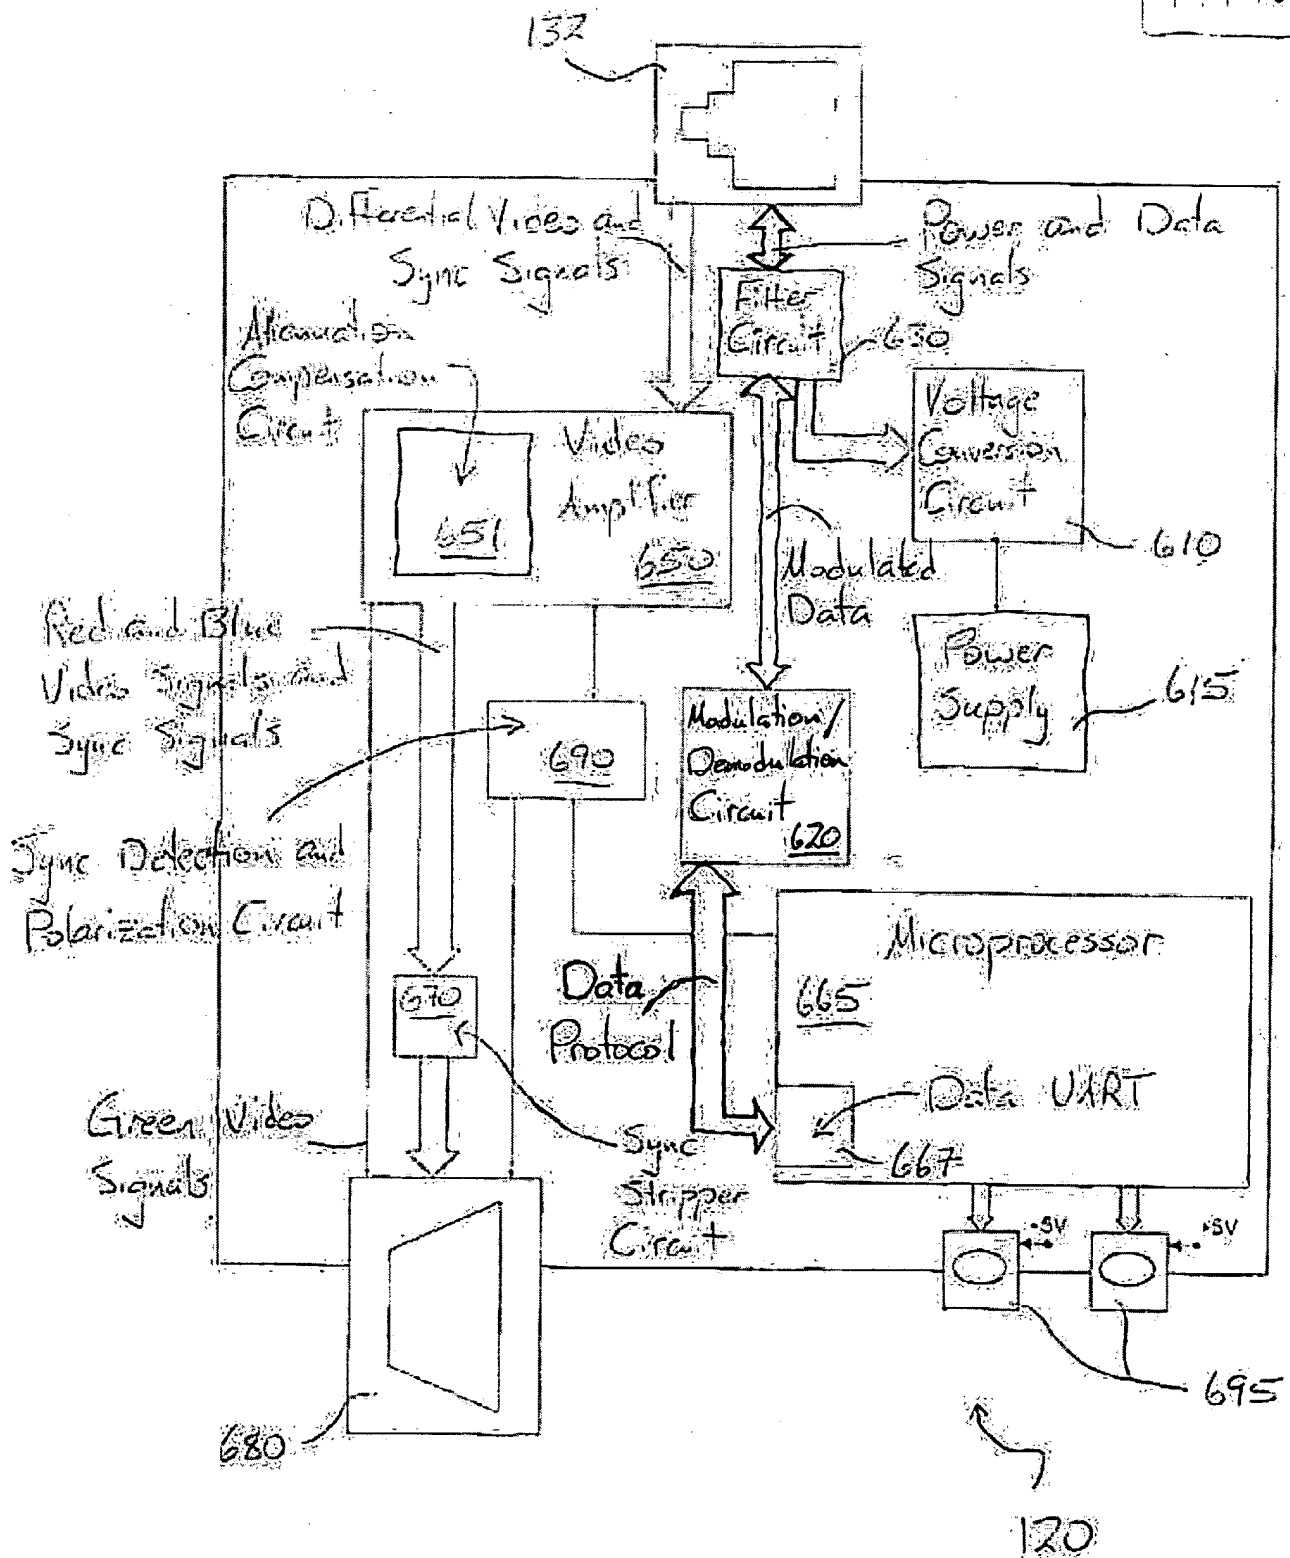 132
Differential Video and
Sync Signals
Power and Data
Signals
Filter
Circuit
630
Attenuation
Compensation
Circuit
Voltage
Conversion
Circuit
610
Video
Amplifier
651
650
Modulated
Data
Red and Blue
Video Signals and
Sync Signals
Power
Supply
615
690
Modulation/
Demodulation
Circuit
620
Sync Detection and
Polarization Circuit
Microprocessor
665
670
Data
Protocol
Data UART
667
Green Video
Signals
Sync
Stripper
Circuit
5V
5V
680
695
120